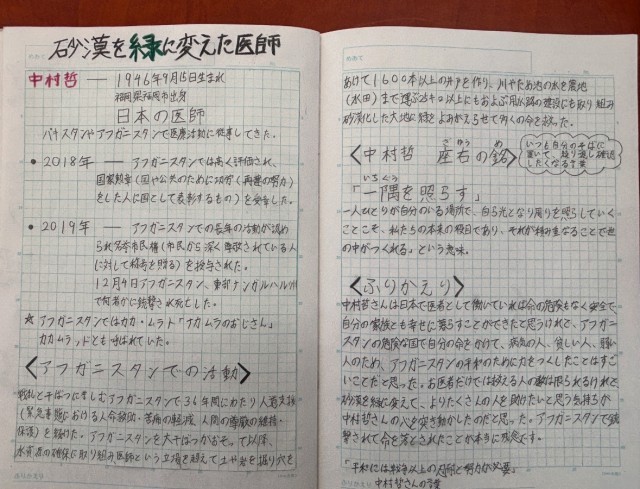 砂漠を緑に変えた医師
中村哲 ― 1946年9月15日生まれ
福岡県福岡市出身
日本の医師
パキスタンやアフガニスタンで医療活動に従事してきた。
● 2018年 ― アフガニスタンでは高く評価され、
国家勲章(国や公共のために功労(再誉の努力)
をした人に国として表彰するもの)を受章した。
● 2019年 ― アフガニスタンでの長年の活動が認め
られ名誉市民権(市民から深く尊敬されている人
に対して称号を贈る)を授与された。
12月4日アフガニスタン、東部ナンガルハル州
で何者かに銃撃され死亡した。
☆ アフガニスタンではカカ・ムラド「ナカムラのおじさん」
カカムラッドとも呼ばれていた。
〈アフガニスタンでの活動〉
戦乱と干ばつに苦しむアフガニスタンで36年間にわたり人道支援
(緊急事態における人命救助・苦痛の軽減、人間の尊厳の維持・
保護)を続けた。アフガニスタンを大干ばつがおそって以降、
水資源の確保に取り組み医師という立場を超えて土や岩を掘り穴を
めあて
あけて1600本以上の井戸を作り、川やため池の水を農地
(水田)まで運ぶ25キロ以上にもおよぶ用水路の建設にも取り組み
砂漠化した大地に緑をよみがえらせて多くの命を救った。
〈中村哲 座右の銘〉
ざゆう めい
いつも自分のそばに
置いて、繰り返し確認
したくなる言葉
いちぐう
「一隅を照らす」
一人ひとりが自分のいる場所で、自ら光となり周りを照らしていく
ことこそ、私たちの本来の役目であり、それが積み重なることで世
の中がつくれる。という意味。
〈ふりかえり〉
中村哲さんは日本で医者として働いていれば命の危険もなく安全で
自分の家族とも幸せに暮らすことができたと思うけれど、アフガニ
スタンの危険な国で自分の命をかけて、病気の人、貧しい人、弱い
人のため、アフガニスタンの平和のために力をつくしたことはすご
いことだと思った。お医者だけでは救える人の数は限られるけれど、
砂漠を緑に変えて、よりたくさんの人を助けたいと思う気持ちが
中村哲さんの心を突き動かしたのだと思った。アフガニスタンで銃
撃されて命を落とされたことが本当に残念です。
「平和には戦争以上の忍耐と努力が必要」
中村哲さんの言葉